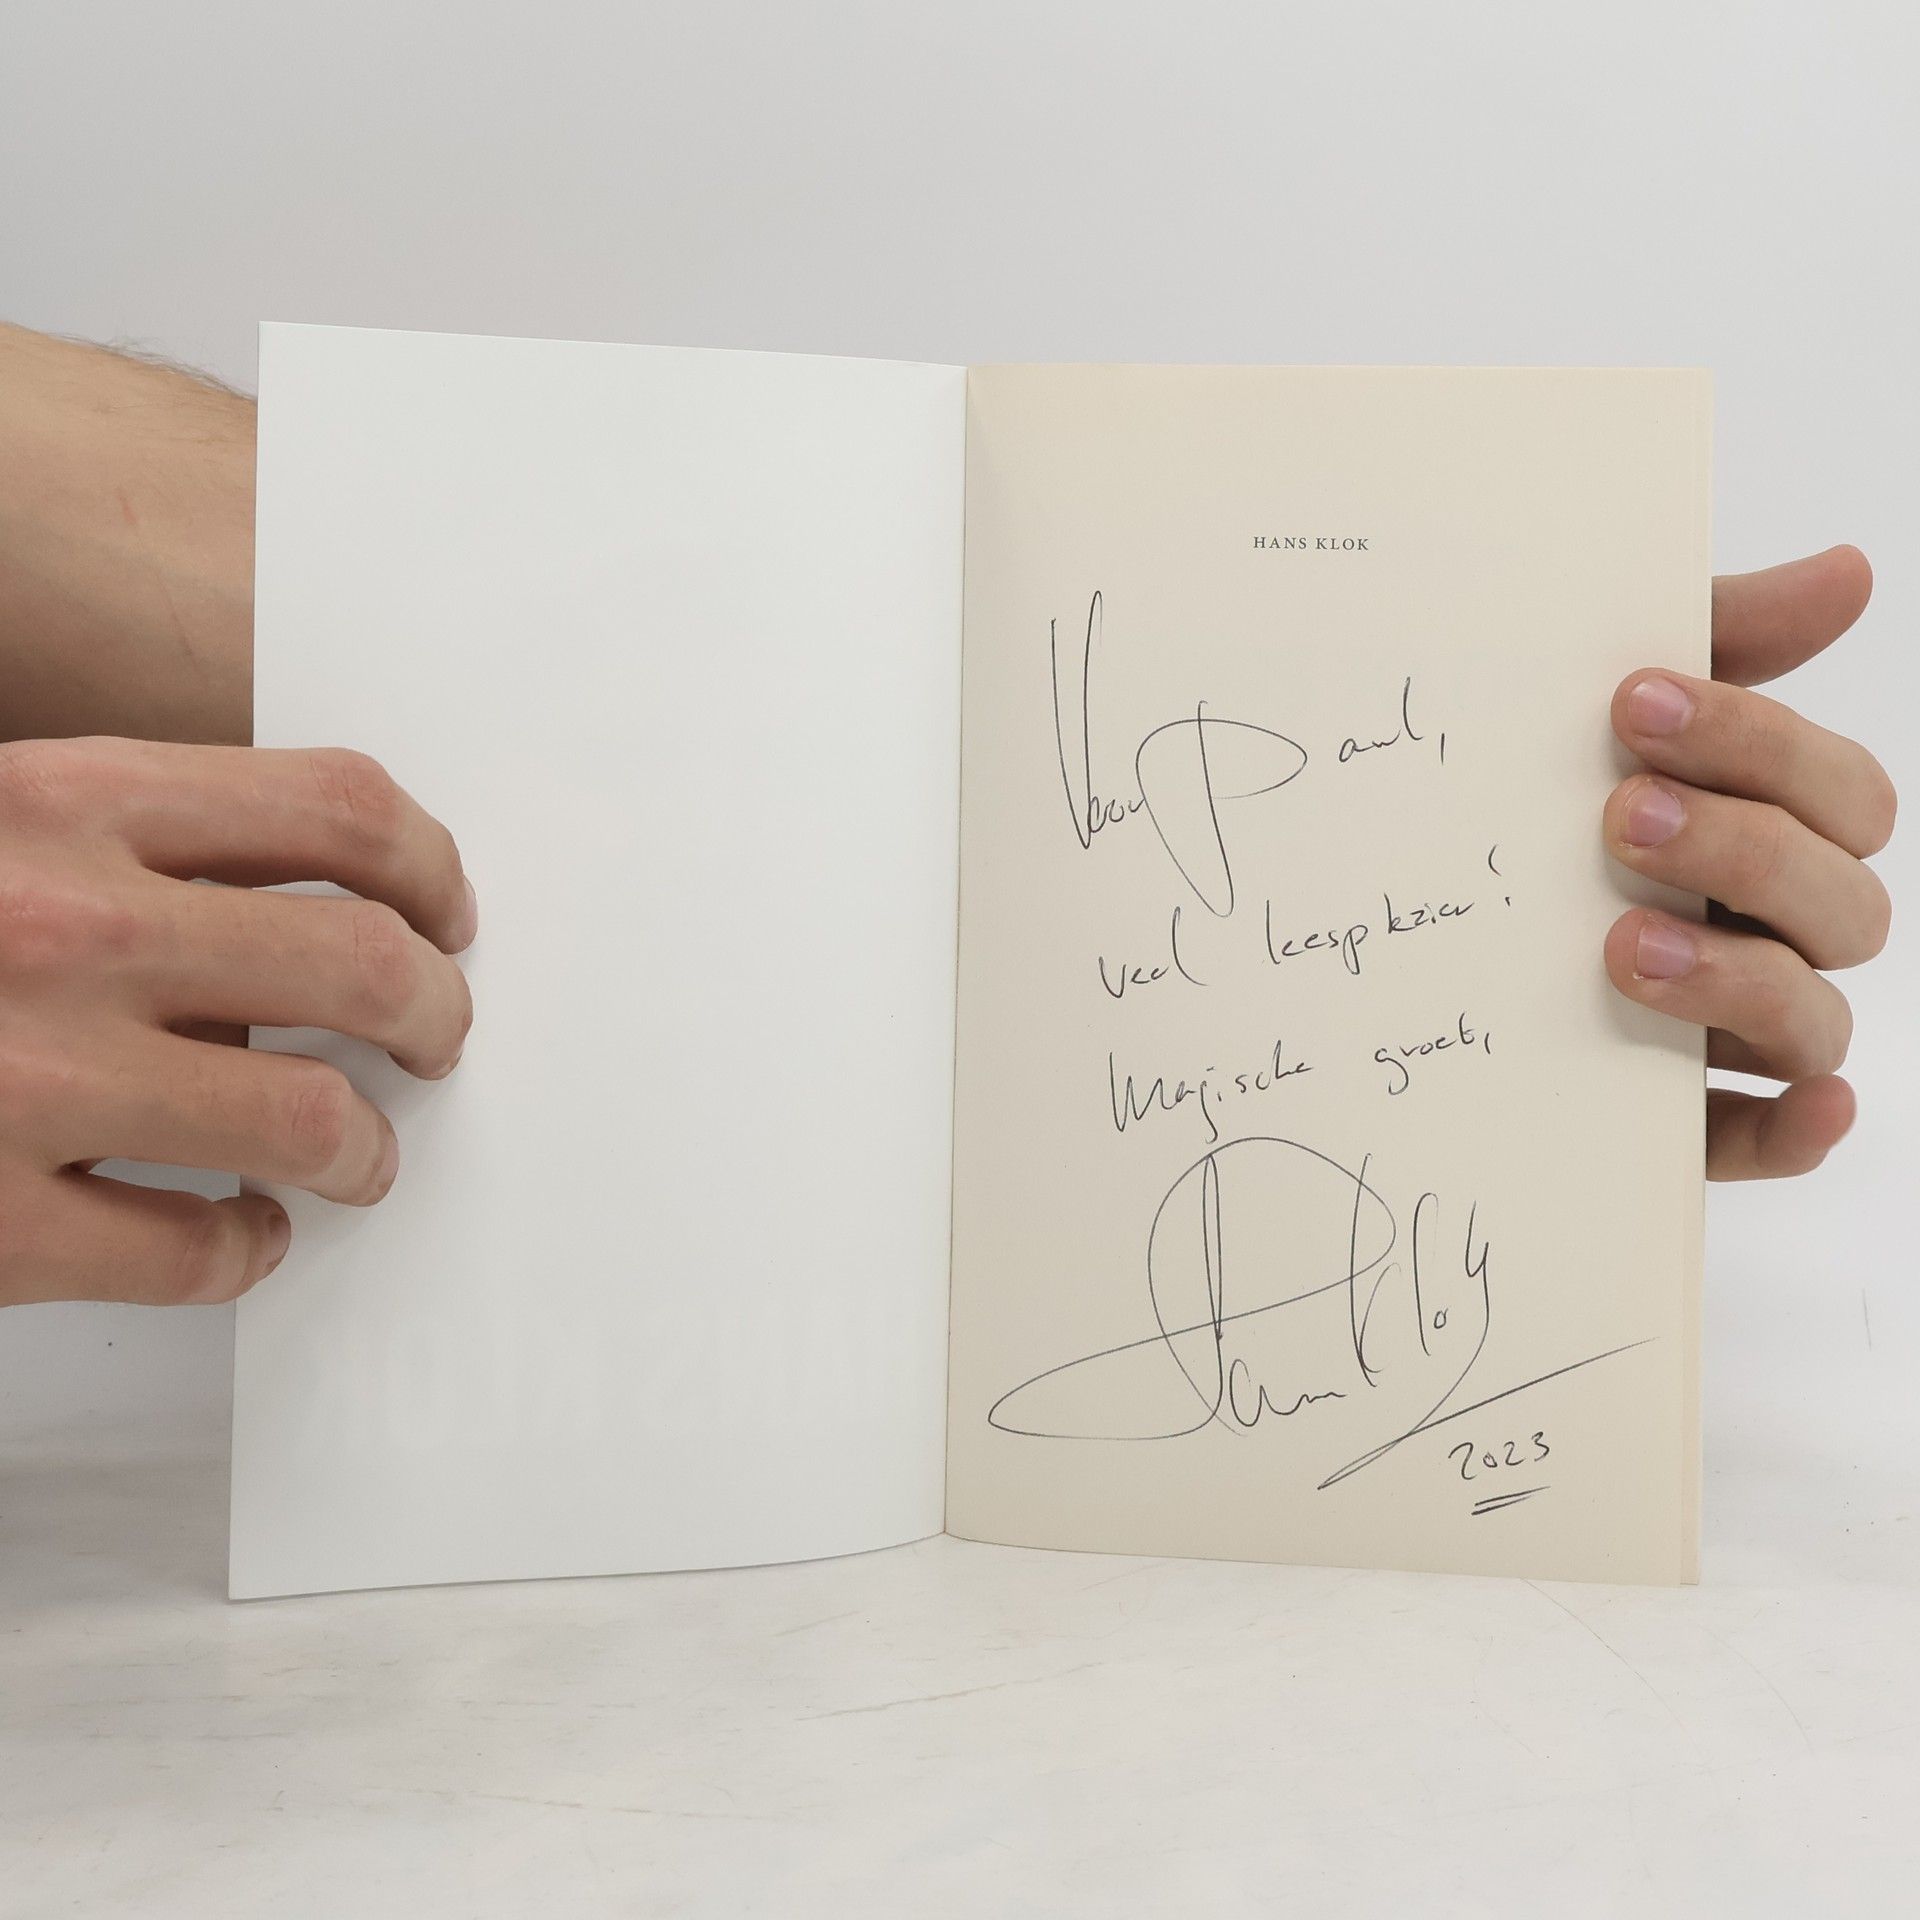 HANS KLOK
Voor Paul,
veel leesplezier!
Magische groet,
Hans Klok
2023